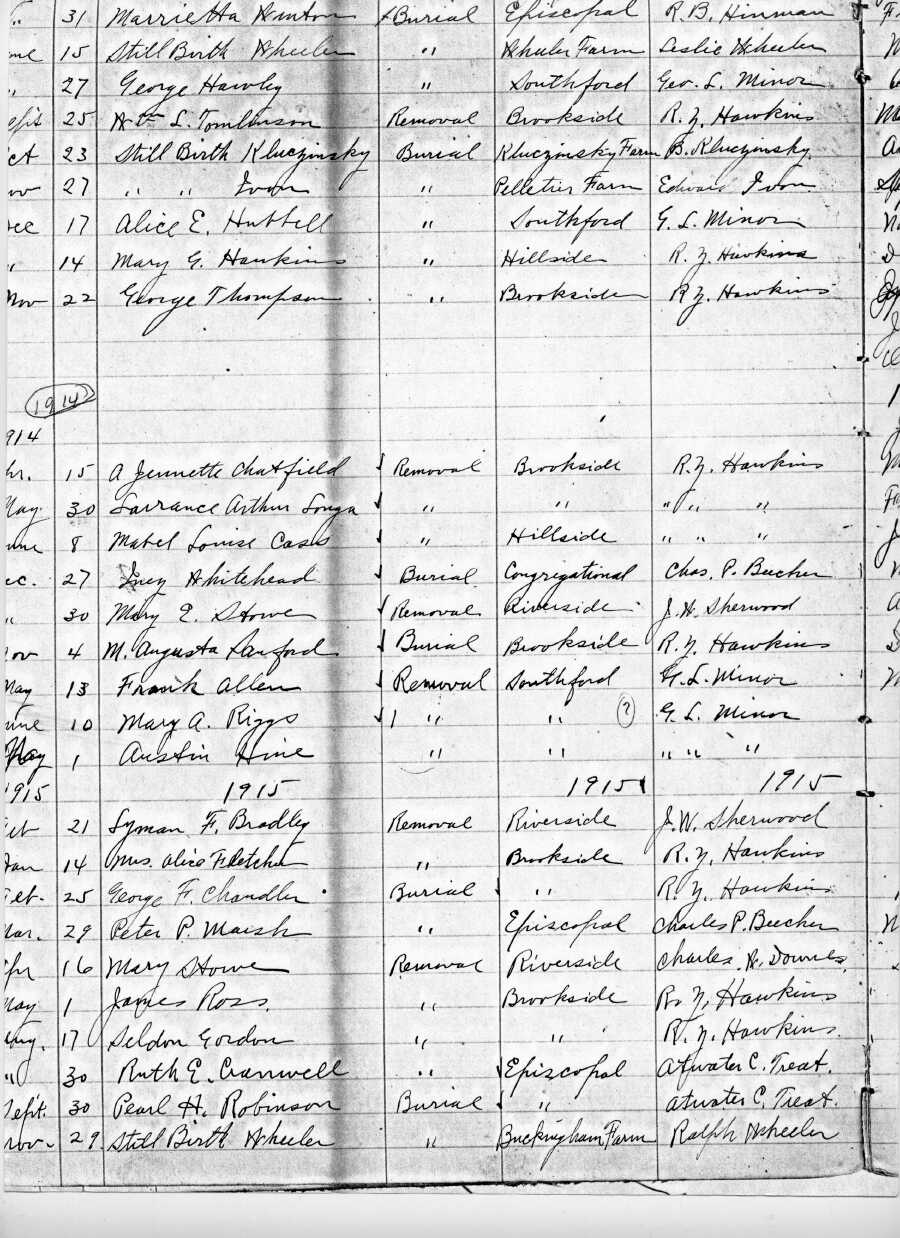 " 31 Marrietta Hinton Burial Episcopal R. B. Hinman
ne 15 Still Birth Wheeler " Wheeler Farm Leslie Wheeler
" 27 George Hawley " Southford Geo. L. Minor
ept 25 Wm L. Tomlinson Removal Brookside R. Y. Hawkins
ct 23 Still Birth Kluczinsky Burial Kluczinsky Farm B. Kluczinsky
ov 27 " " Ivon " Pelletier Farm Edward Ivon
ec 17 Alice E. Hubbell " Southford G. L. Minor
" 14 Mary G. Hawkins " Hillside R. Y. Hawkins
Nov 22 George Thompson " Brookside R. Y. Hawkins
1914
914
15 A Jennette Chatfield Removal Brookside R. Y. Hawkins
May 30 Larrance Arthur Longa " " " " "
une 8 Mabel Louise Cass " Hillside " " "
ec. 27 Lucy Whitehead Burial Congregational Chas. P. Beecher
" 30 Mary E. Stowe Removal Riverside J. W. Sherwood
ov 4 M. Augusta Sanford Burial Brookside R. Y. Hawkins
May 13 Frank Allen Removal Southford G. L. Minor
une 10 Mary A. Riggs " " (?) G. L. Minor
May 1 Austin Hine " " " " "
1915 1915 1915 1915
21 Lyman F. Bradley Removal Riverside J. W. Sherwood
Jan 14 Mrs. Alice Fletcher " Brookside R. Y. Hawkins
Feb. 25 George F. Chandler Burial " R. Y. Hawkins
Mar. 29 Peter P. Marsh " Episcopal Charles P. Beecher
Apr 16 Mary Stowe Removal Riverside Charles A. Downes
May 1 James Ross. " Brookside R. Y. Hawkins
Aug. 17 Seldon Gordon " " R. Y. Hawkins.
" 30 Ruth E. Cranwell " Episcopal Atwater C. Treat.
Sept. 30 Pearl H. Robinson Burial " Atwater C. Treat.
Nov. 29 Still Birth Wheeler " Buckingham Farm Ralph Wheeler